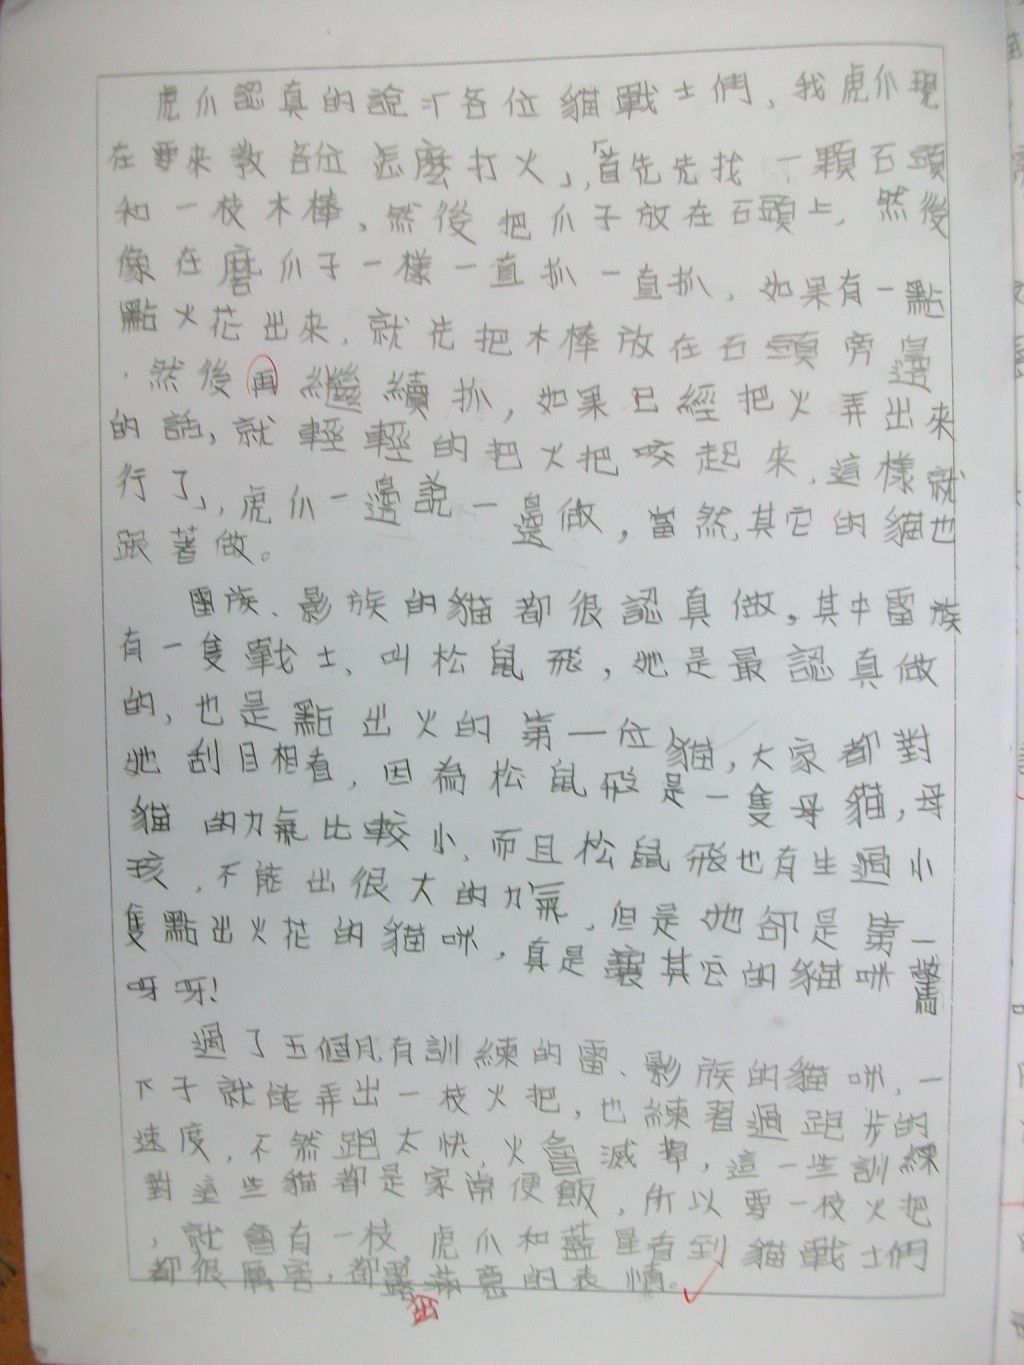 虎爪認真的說:「各位貓戰士們,我虎爪現
在要來教各位怎麼打火」,「首先先找一顆石頭
和一枝木棒,然後把爪子放在石頭上,然後
像在磨爪子一樣一直抓一直抓,如果有一點
點火花出來,就先把木棒放在石頭旁邊
,然後再繼續抓,如果已經把火弄出來
的話,就輕輕的把火把咬起來,這樣就
行了」,虎爪一邊說一邊做,當然,其它的貓也
跟著做。
雷族、影族的貓都很認真做,其中雷族
有一隻戰士、叫松鼠飛,她是最認真做
的,也是點出火的第一位貓,大家都對
她刮目相看,因為松鼠飛是一隻母貓,母
貓的力氣比較小,而且松鼠飛也有生過小
孩,不能出很大的力氣,但是她卻是第一
隻點出火花的貓咪,真是讓其它的貓咪驚
呀呀!
過了五個月有訓練的雷、影族的貓咪,一
下子就能弄出一枝火把,也練習過跑步的
速度,不然跑太快,火會滅掉,這一些訓練
對這些貓都是家常便飯,所以要一枝火把
,就會有一枝。虎爪和藍星看到貓戰士們
都很厲害,都露滿意的表情。
出